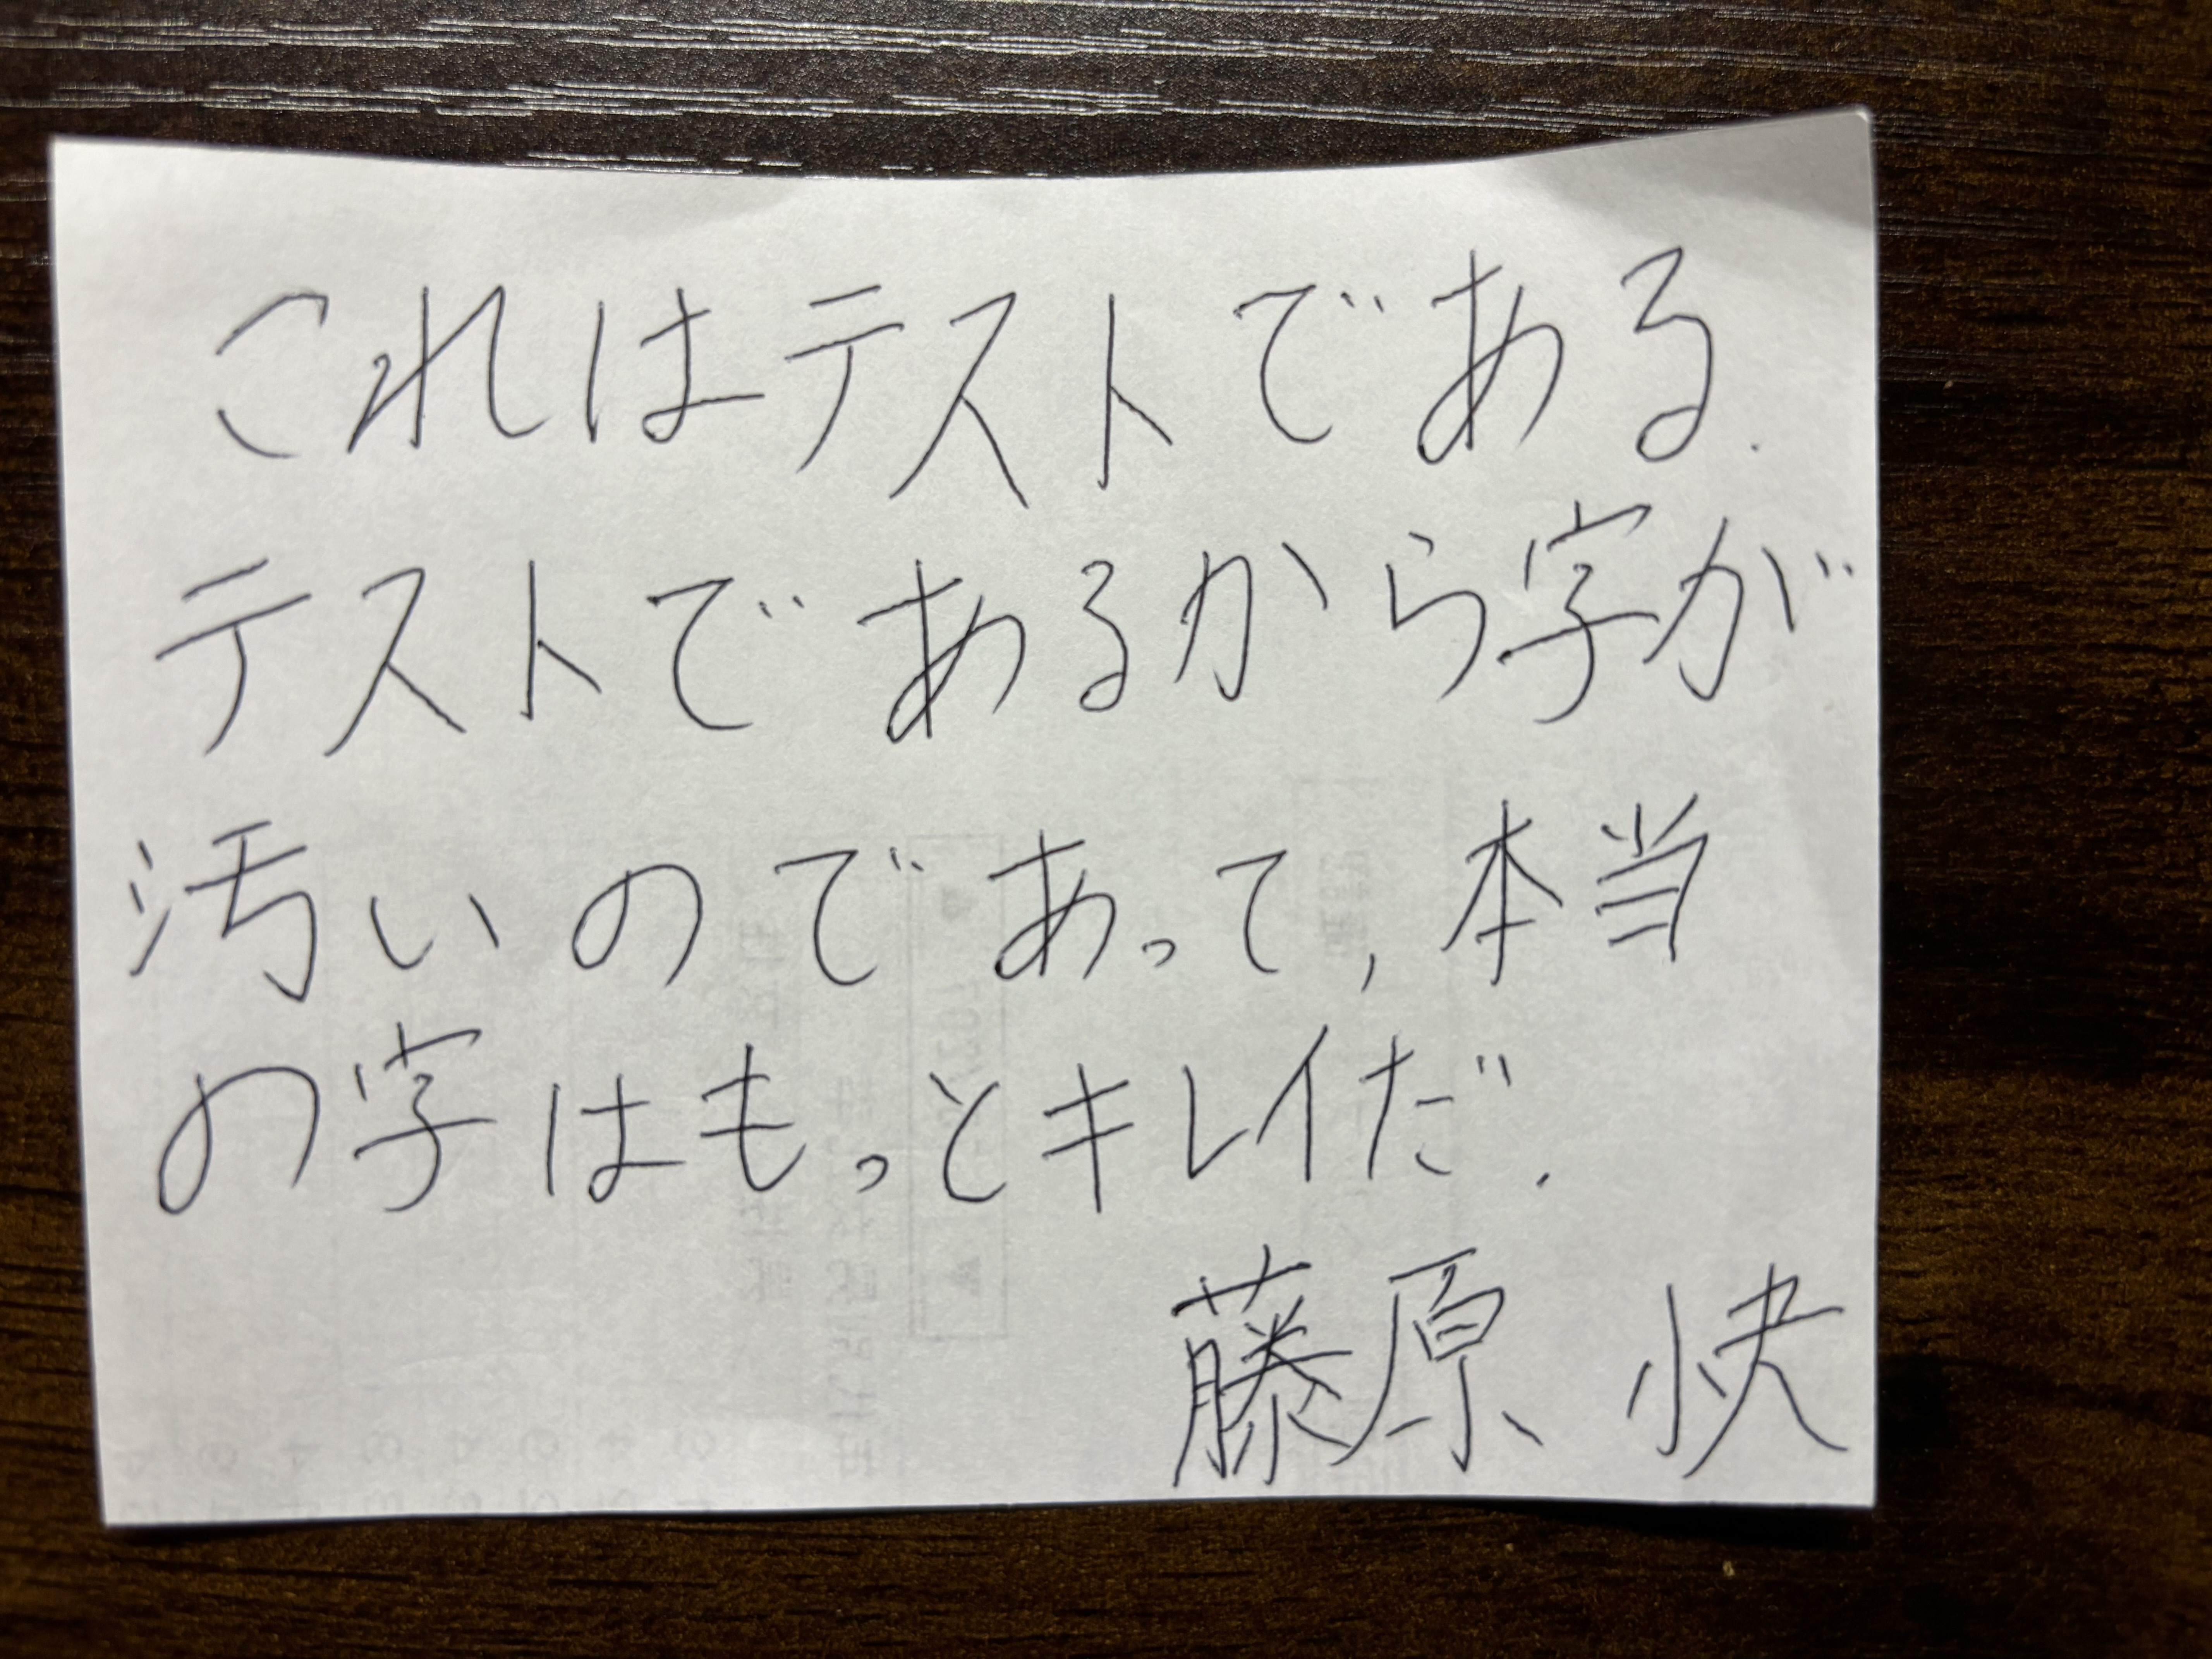 これはテストである.
テストであるから字が
汚いのであって,本当
の字はもっとキレイだ.
藤原 快